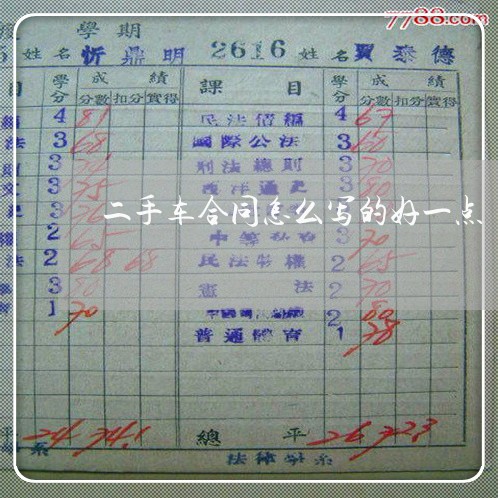 7788.com
學期
姓名 忻鼎明 2616 姓名 賈泰德
目 學分 成績 課目 學分 成績
分數 扣分 實得 分數 扣分 實得
4 81 民法債編 4 67
法 3 68 國際公法 3 60
3 刑法總則 3 70
3 75 西洋通史 3 80
二手车合同怎么写的好一点
2 65 3 70
法 2 68 68 民法物權 2 65
3 80 憲法 2 70
1 70 2 80
普通體育 1 78
平 24 74.1 總平 26 72.3
系 法律學系